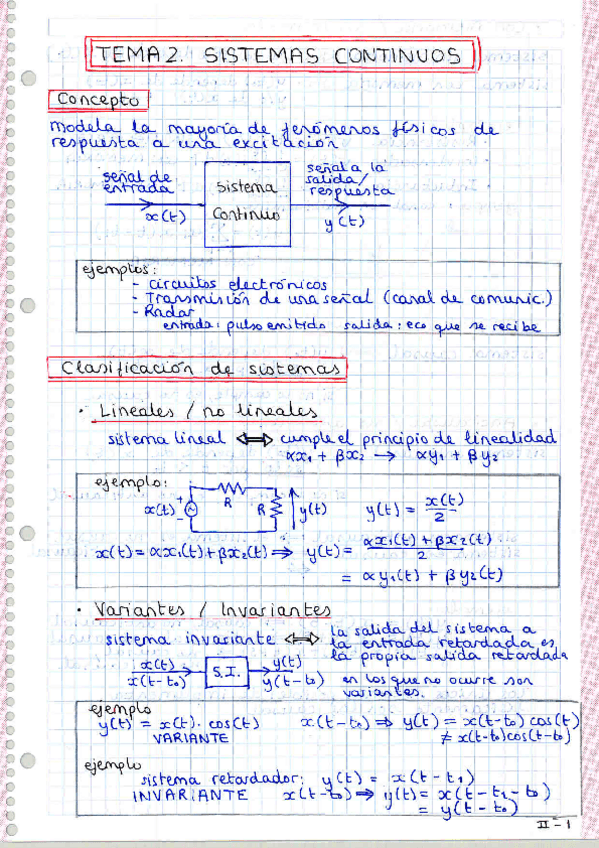 TEMA 2. SISTEMAS CONTINUOS
Concepto
Modela la mayoría de fenómenos físicos de
respuesta a una excitación
señal de
entrada
x(t)
Sistema
Continuo
señal a la
salida/
respuesta
y(t)
ejemplos:
- Circuitos electrónicos
- Transmisión de una señal (canal de comunic.)
- Radar
entrada: pulso emitido salida: eco que se recibe
Clasificación de sistemas
· Lineales / no lineales
sistema lineal ⟺ cumple el principio de linealidad
αx₁ + βx₂ → αy₁ + βy₂
ejemplo:
x(t) + - R R y(t) y(t) = x(t)/2
x(t) = αx₁(t) + βx₂(t) ⟹ y(t) = αx₁(t) + βx₂(t)/2
= αy₁(t) + βy₂(t)
· Variantes / Invariantes
sistema invariante ⟺ la salida del sistema a
la entrada retardada es
la propia salida retardada
x(t) S.I. y(t)
x(t-t₀) y(t-t₀) en los que no ocurre son
variantes.
ejemplo
y(t) = x(t)· cos(t) x(t-t₀) ⟹ y(t) = x(t-t₀) cos(t)
VARIANTE ≠ x(t-t₀)cos(t-t₀)
ejemplo
sistema retardador: y(t) = x(t-t₁)
INVARIANTE x(t-t₀) ⟹ y(t) = x(t-t₁-t₀)
= y(t-t₀)
II-1